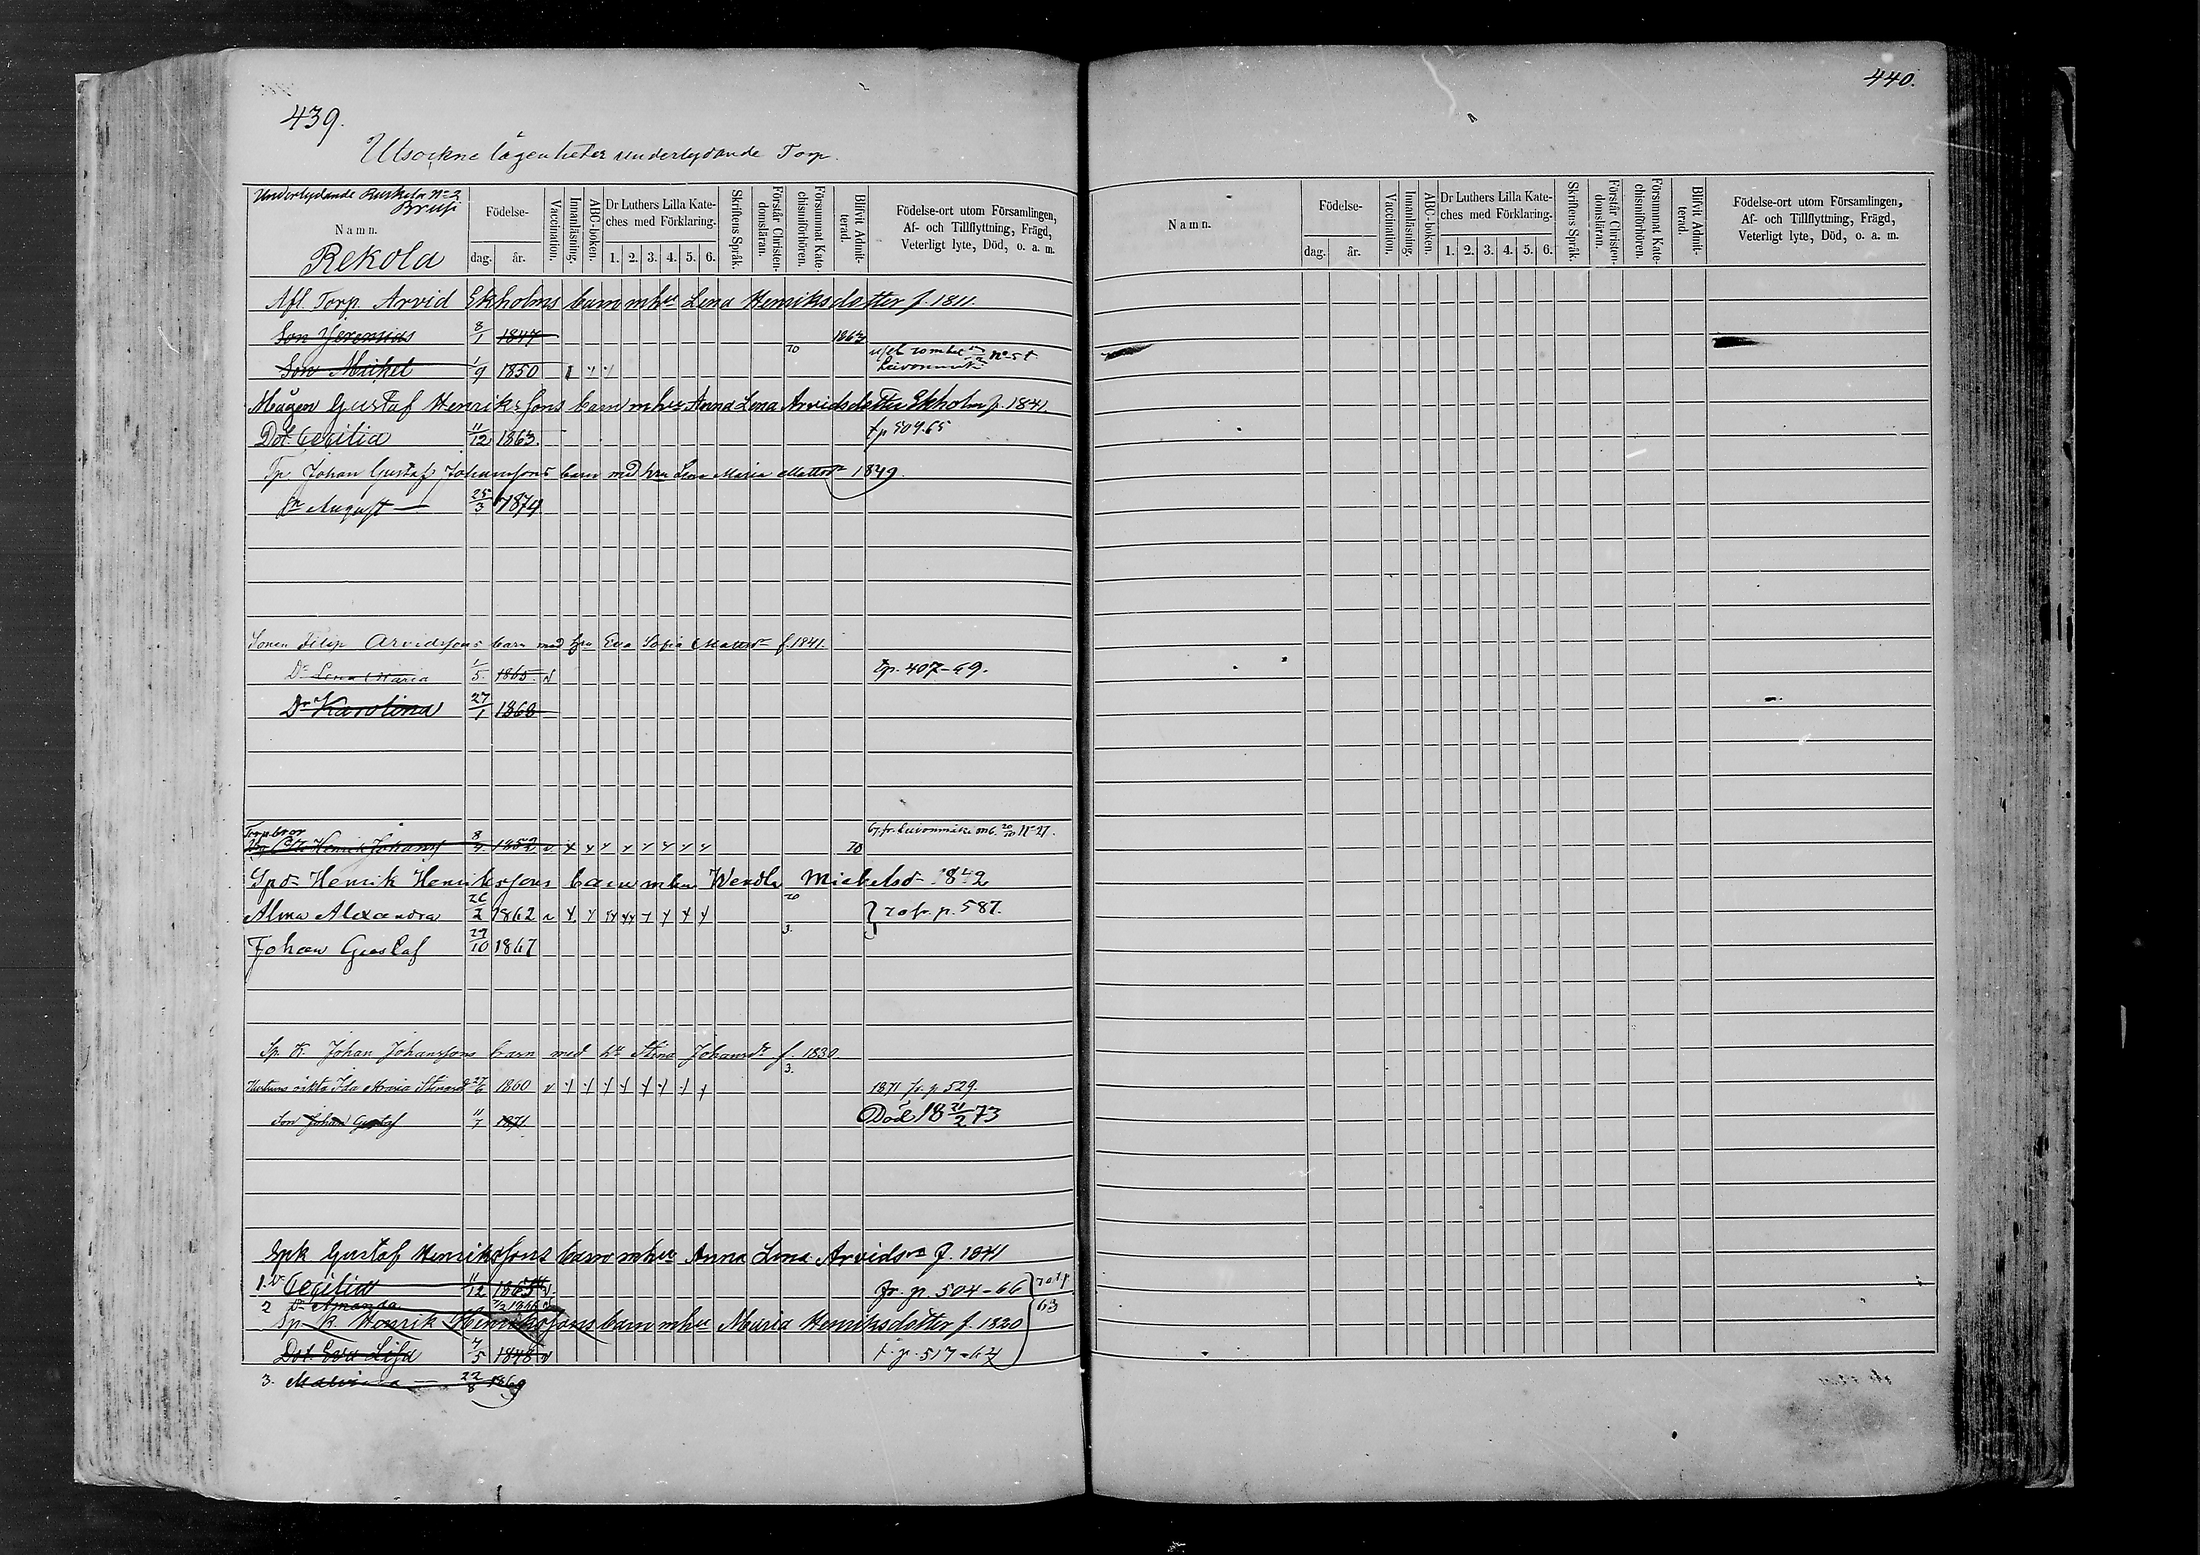 439.
440.
Utsockne lägenheter underlydande Torp.
Underlydande Ruskela No 2
Brusi
Namn.
Rekola
Födelse-
dag.
år.
Vaccination.
Innanläsning.
ABC-boken.
Dr Luthers Lilla Kate-
ches med Förklaring.
1. 2. 3. 4. 5. 6.
Skriftens Språk.
Förstår Christen-
domsläran.
Försummat Kate-
chismiförhören.
Blifvit Admit-
terad.
Födelse-ort utom Församlingen,
Af- och Tillflyttning, Frägd,
Veterligt lyte, Död, o. a. m.
Afl. Torp. Arvid Ekholms barn m hu Lena Henriksdotter f. 1811.
Son Jeremias 8/1 1847 1863
Son Mikel 1/9 1850 70 No 51
Mågen Gustaf Henrikssons barn m hu Anna Lena Arvidsdotter Ekholm f. 1841.
Dot. Cecilia 11/12 1863. t p 504.65
Tp. Johan Gustaf Johanssons barn med hru Lena Maria Mattsdr 1849.
Sn August — 25/3 1874
Sonen Filip Arvidssons barn med hru Eva Sofia Mattsdr f. 1841.
Dr Lena Maria 1/5. 1865. v tp. 407-69.
Dr Karolina 27/1 1868
Torp. bror
Henrik Johanss 8 1852 v x x x x x x x x 70 67 fr. Leivonmäki No 27.
Henrik Henrikssons barn m hu Wendla Mickelsd 1842
Alma Alexandra 26/2 1862 70 } 70 fr. p. 587.
Johan Gustaf 29/10 1867 3.
Sp. K. Johan Johanssons barn med hu Stina Johansdr f. 1830.
Hustruns oäkta Ida Maria 27/6 1860 v x x x x x x x x 3. 1871 fr. p. 529.
Son Johan Gustaf 11/7 1871. Död 18 21/2 73
Spk Gustaf Henrikssons barn m hu Anna Lena Arvidsdr f. 1841
1. Dr Cecilia 11/12 1863 v fr. p. 504-66
2 Dr Amanda 1866 v 63
Sp K Henrik Henrikssons barn m hu Maria Henriksdotter f. 1820
Dot. Eva Lisa 4/5 1848 v t. p. 517-67
3. Malvina — 22/8 1869
Namn.
Födelse-
dag.
år.
Vaccination.
Innanläsning.
ABC-boken.
Dr Luthers Lilla Kate-
ches med Förklaring.
1. 2. 3. 4. 5. 6.
Skriftens Språk.
Förstår Christen-
domsläran.
Försummat Kate-
chismiförhören.
Blifvit Admit-
terad.
Födelse-ort utom Församlingen,
Af- och Tillflyttning, Frägd,
Veterligt lyte, Död, o. a. m.